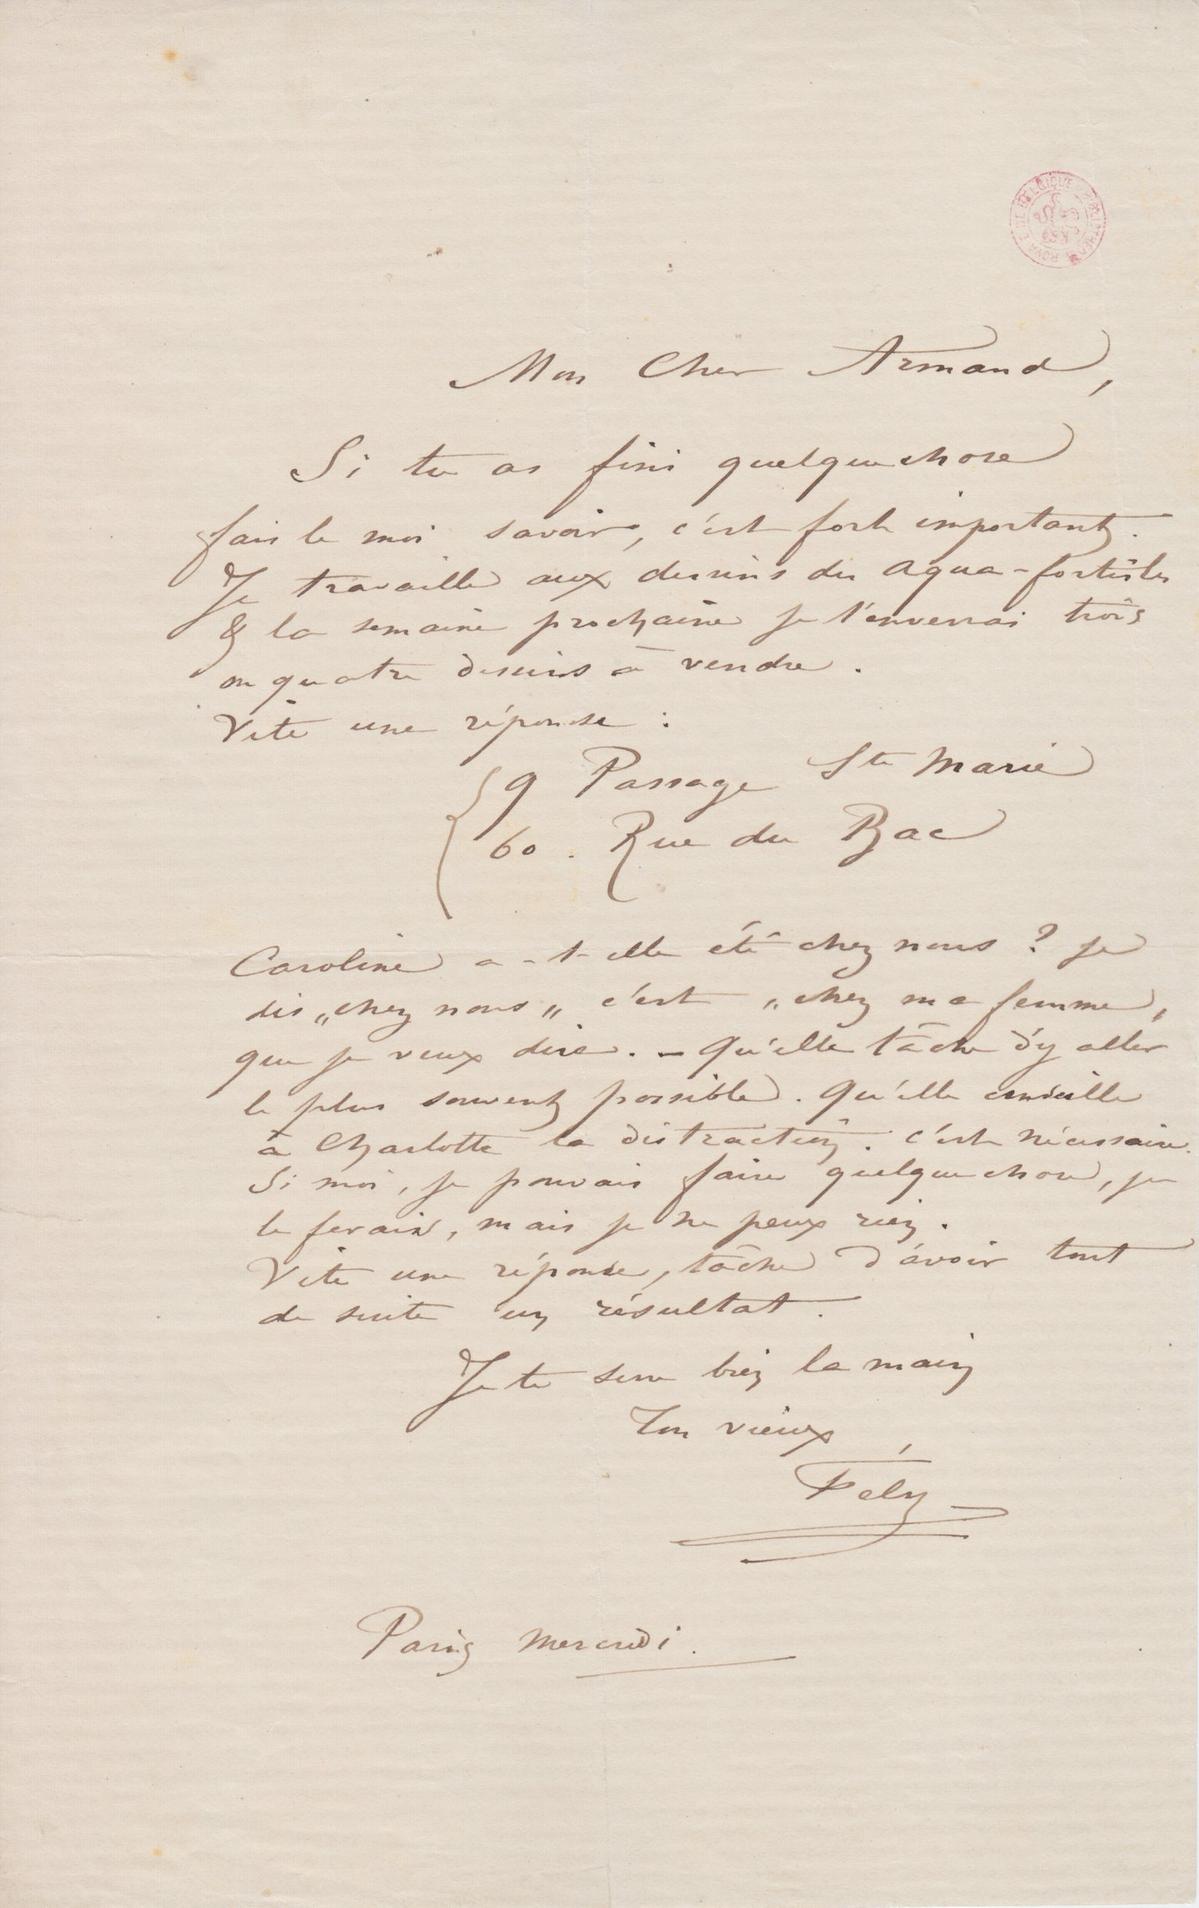 BIBLIOTHÈQUE ROYALE DE BELGIQUE
Mon Cher Armand,
Si tu as fini quelquechose
fais le moi savoir, c'est fort important.
Je travaille aux dessins des aqua-fortistes
& la semaine prochaine je t'enverrai trois
ou quatre dessins à vendre.
Vite une réponse :
9 Passage Ste Marie
60. Rue du Bac
Caroline a-t-elle été chez nous ? je
dis „chez nous„ c'est „chez ma femme„
que je veux dire. – Qu'elle tâche d'y aller
le plus souvent possible. Qu'elle conseille
à Charlotte la distraction. c'est nécessaire.
Si moi, je pouvais faire quelquechose, je
le ferais, mais je ne peux rien.
Vite une réponse, tâche d'avoir tout
de suite un résultat.
Je te serre bien la main
Ton vieux
Fély
Paris mercredi.